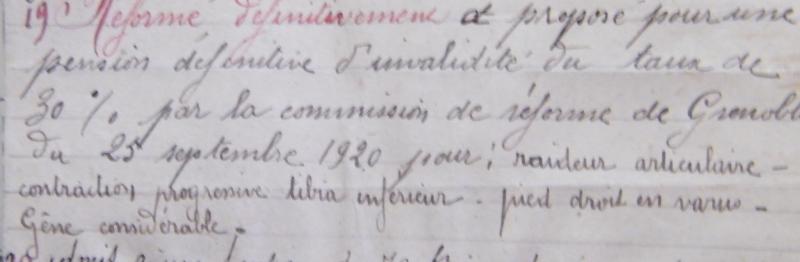 19 Réformé définitivement et proposé pour une
pension définitive d'invalidité du taux de
30 % par la commission de réforme de Grenobl
du 25 septembre 1920 pour: raideur articulaire -
contraction progressive tibia inférieur. pied droit en varus -
Gêne considérable.